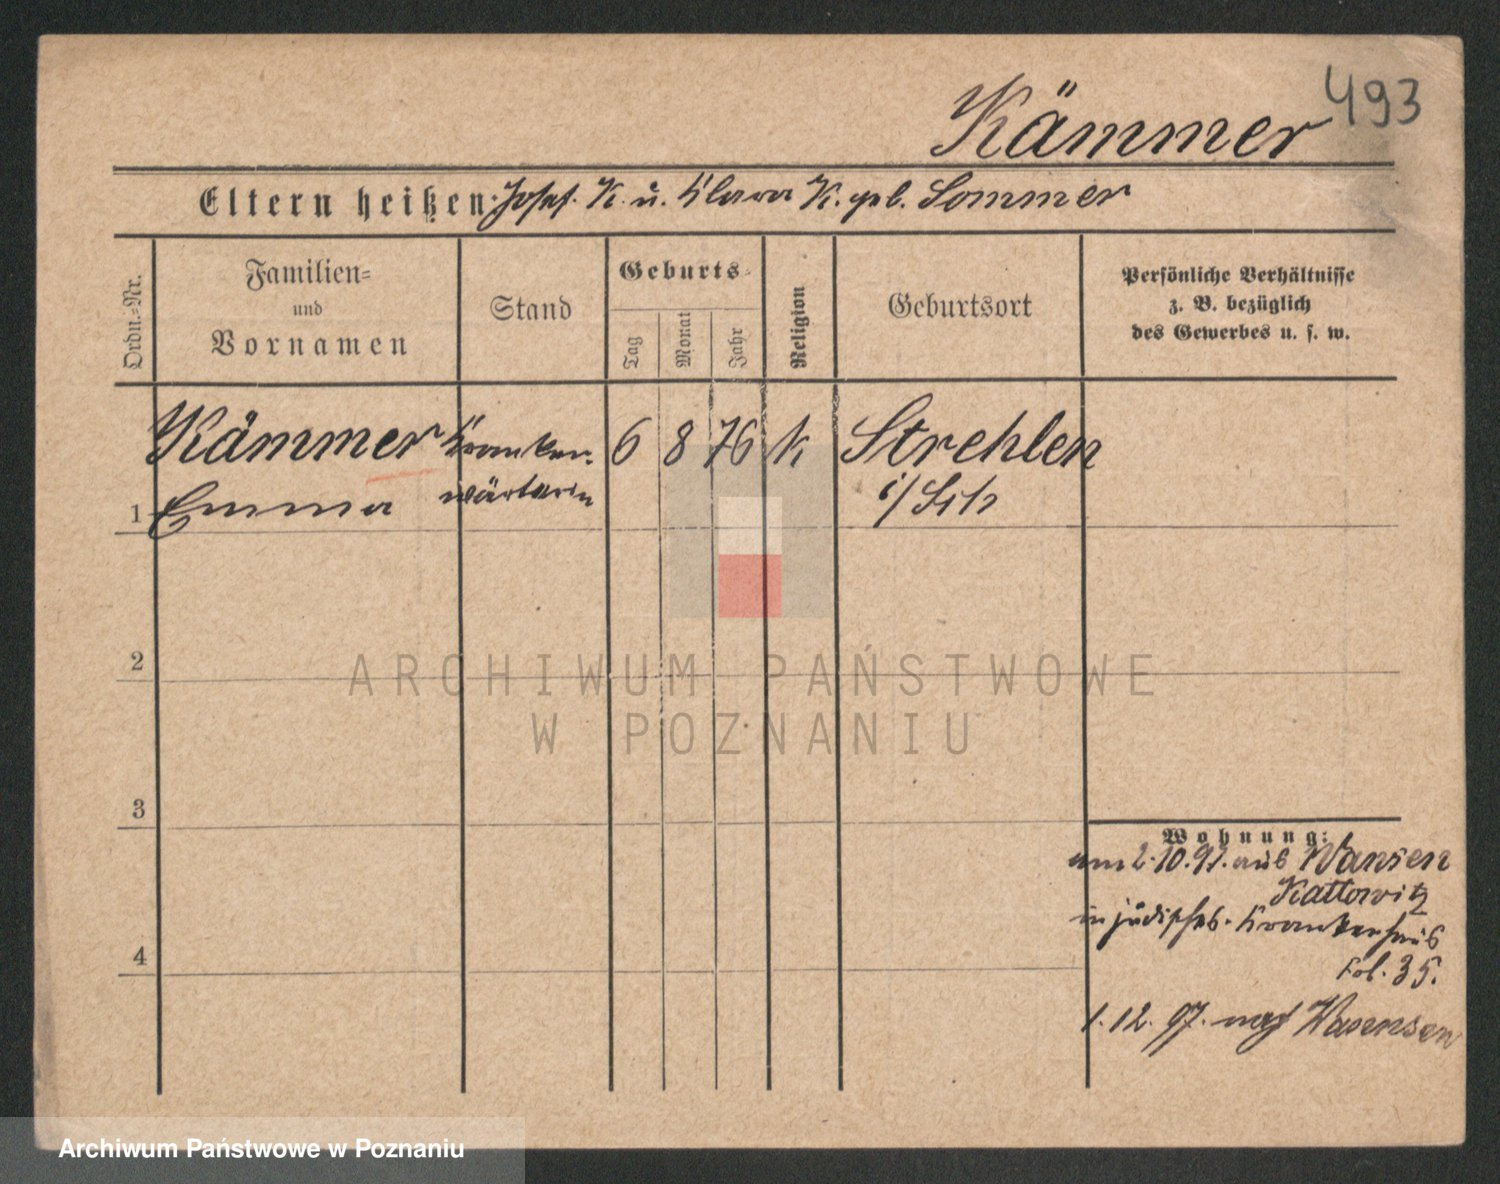 493
Kämmer
Eltern heißen: Josef K. u. Klara K. geb. Sommer
Ordn.=Nr.
Familien=
und
Vornamen
Stand
Geburts=
Tag
Monat
Jahr
Religion
Geburtsort
Persönliche Verhältnisse
z. B. bezüglich
des Gewerbes u. s. w.
Kämmer Kranken- 6 8 76 k Strehlen
1 Emma wärterin i/
2
ARCHIWUM PAŃSTWOWE
W POZNANIU
3
Wohnung:
am 2.10.97. aus Wansen
Kattowitz
in jüdisches Krankenhaus
35.
1.12.97. nach
4
Archiwum Państwowe w Poznaniu